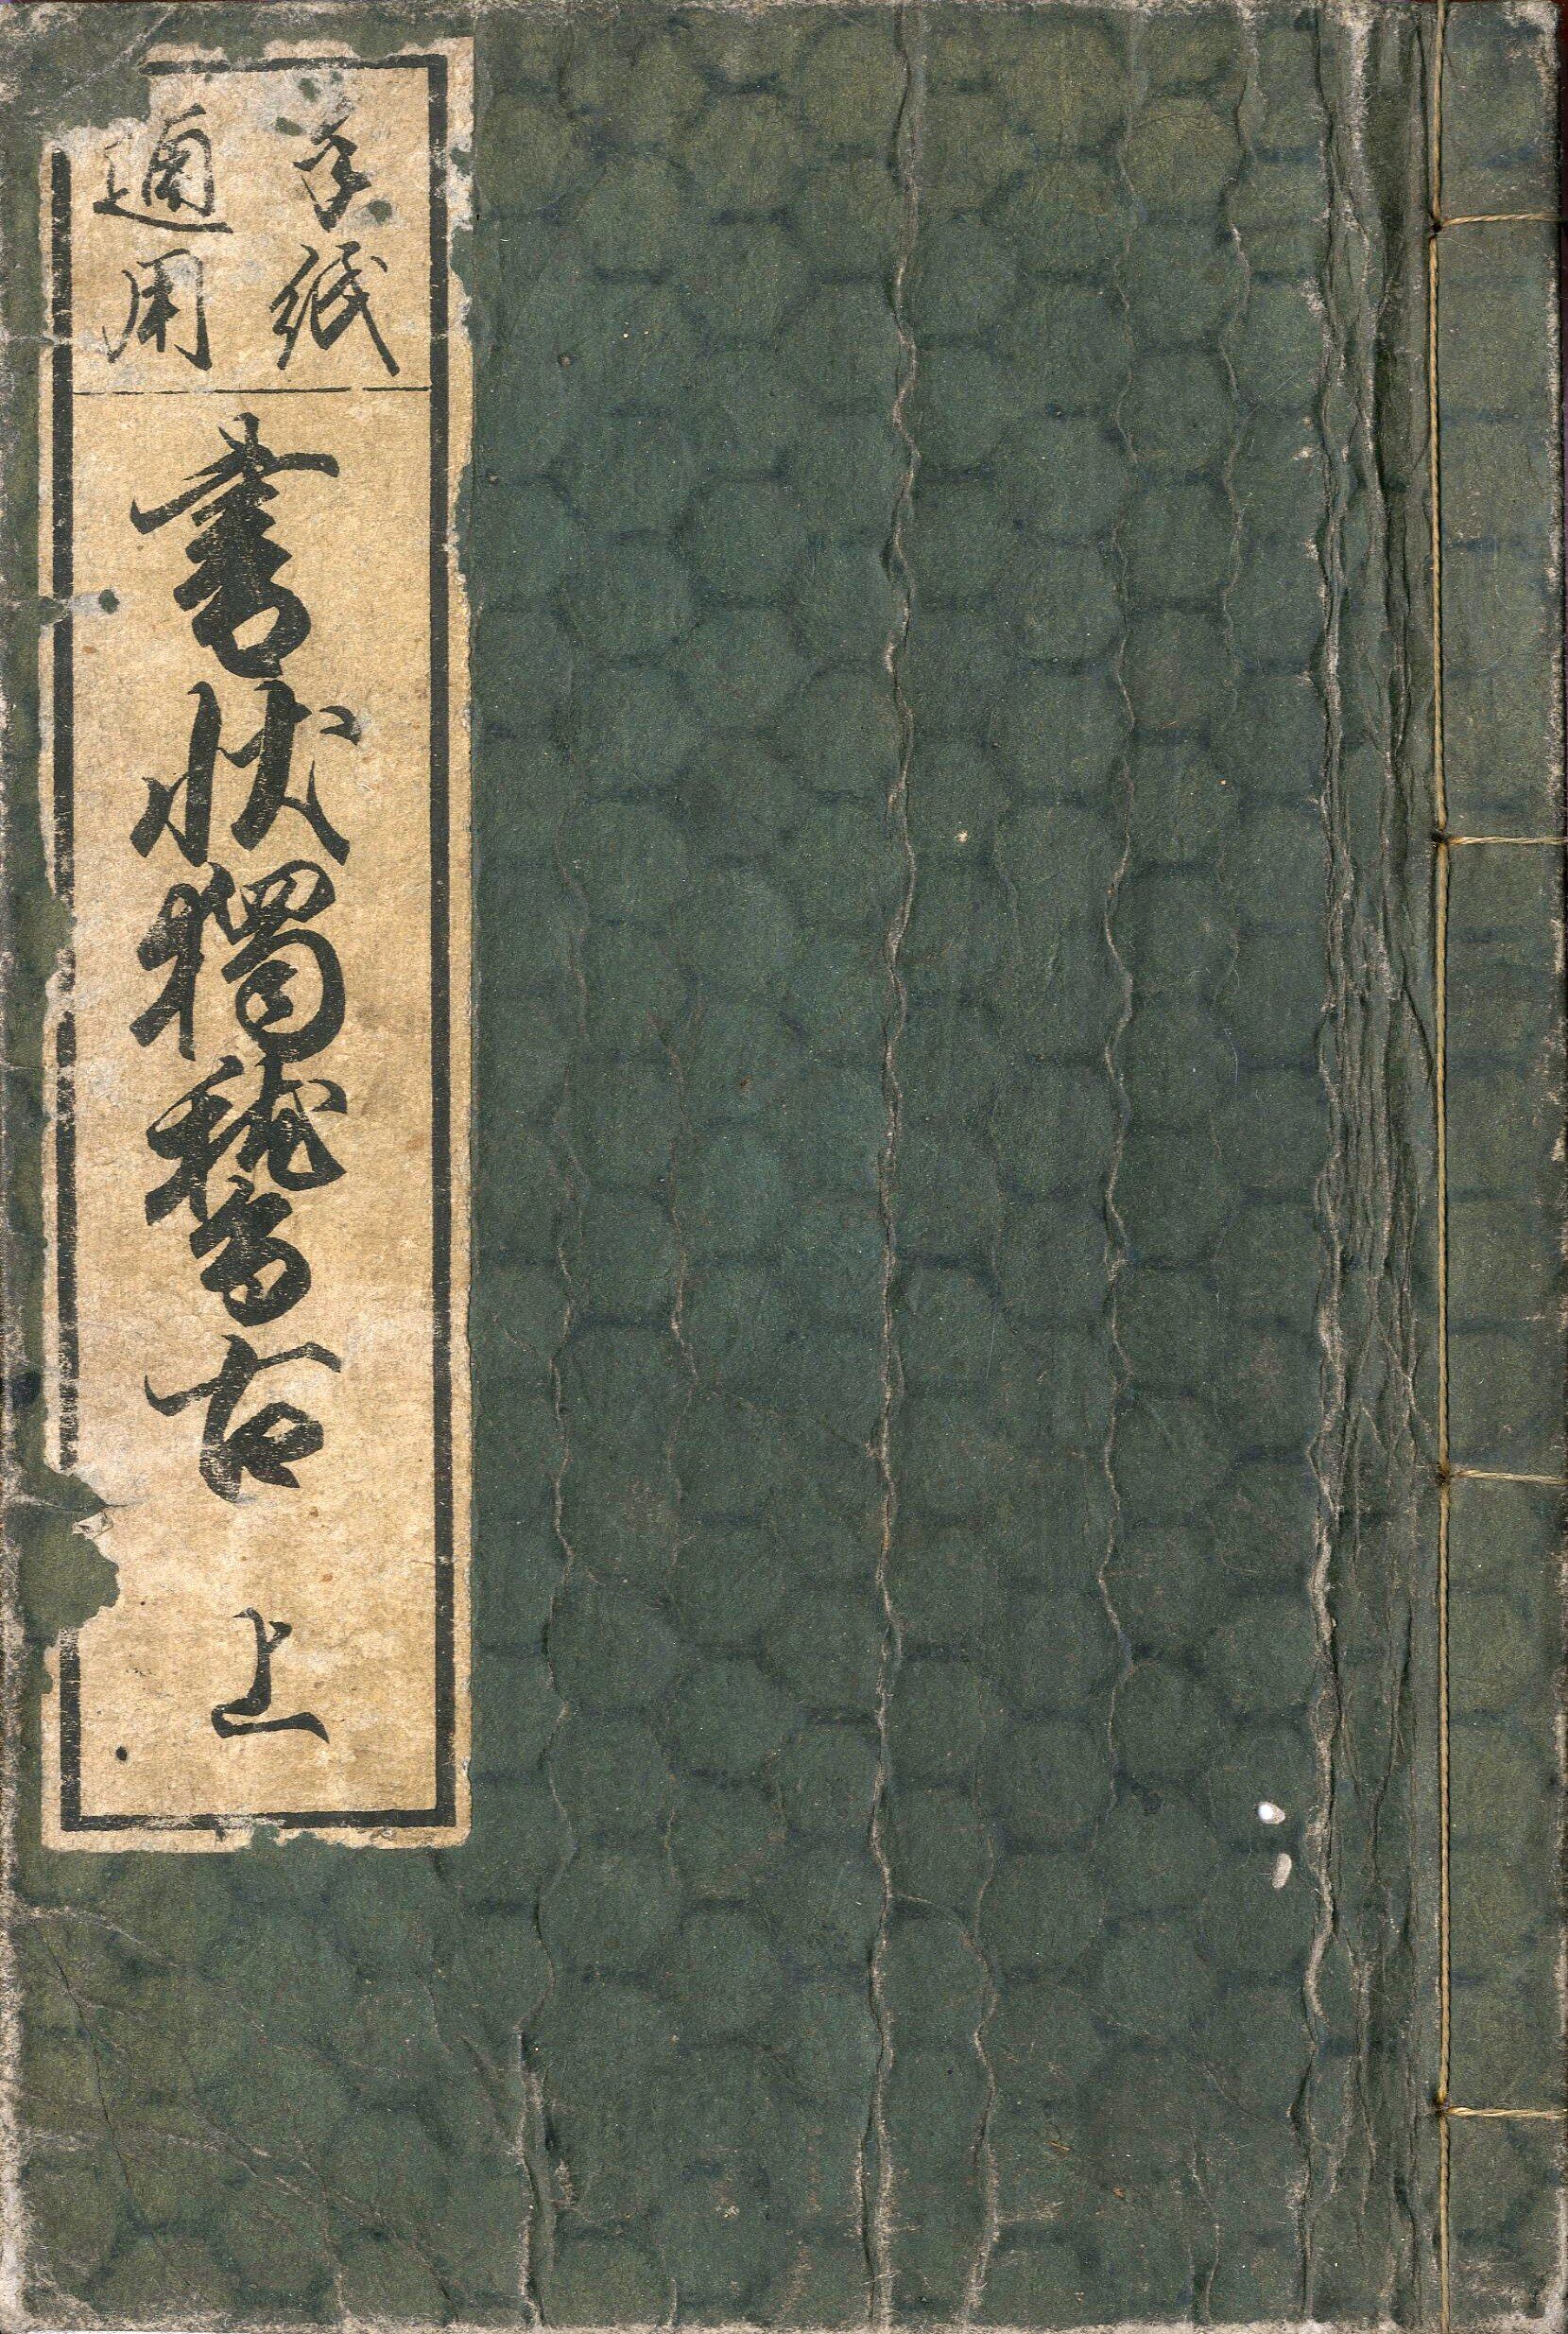 手紙
通用
書状獨稽古
上